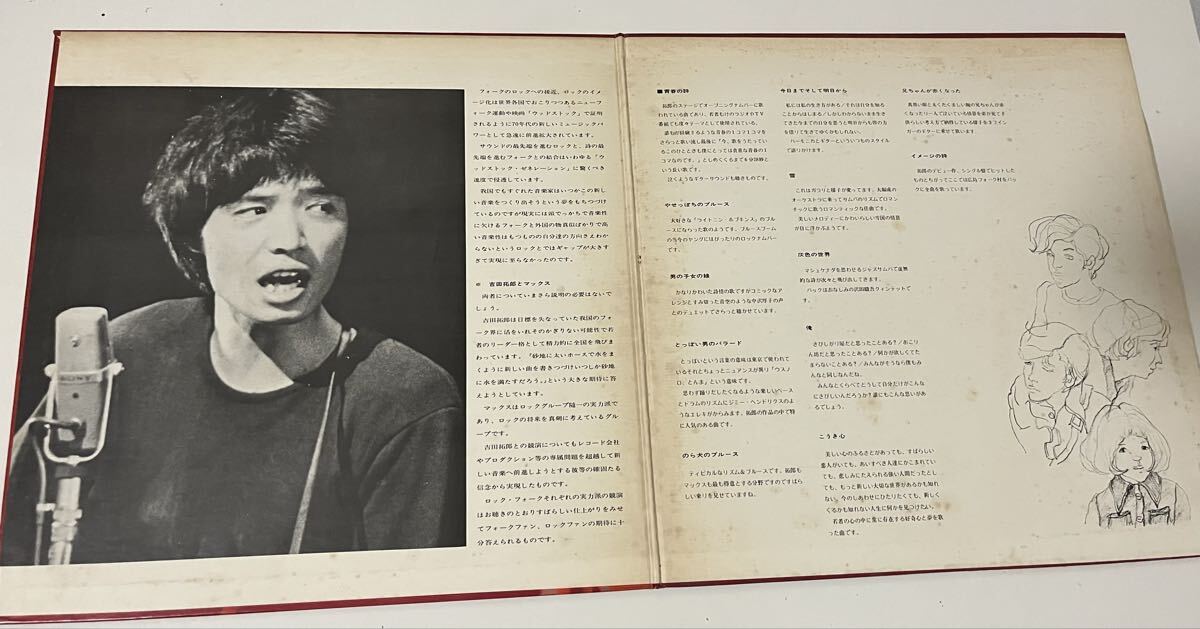 フォークのロックへの接近、ロックのイメ
ージ化は世界各国でおこりつつあるニューフ
ォーク運動や映画「ウッドストック」で証明
されるように70年代の新しいミュージックパ
ワーとして急速に前進拡大されています。
サウンドの最先端を進むロックと、詩の最
先端を進むフォークとの結合はいわゆる「ウ
ッドストック・ゼネレーション」に驚くべき
速度で侵透しています。
我国でもすぐれた音楽家はいつかこの新し
い音楽をつくり出そうという夢をもちつづけ
ているのですが現実には頭でっかちで音楽性
に欠けるフォークと外国の物真似ばかりで高
い音楽性はもつものの自分達の方向さえわか
らないというロックとではギャップが大きす
ぎて実現に至らなかったのです。
吉田拓郎とマックス
両者についていまさら説明の必要はないで
しょう。
吉田拓郎は目標を失なっていた我国のフォ
ーク界に活をいれそのかぎりない可能性で若
者のリーダー格として精力的に全国を飛びま
わっています。『砂地に太いホースで水をま
くように新しい曲を書きつづけいつしか砂地
に水を満たすだろう。』という大きな期待に答
えようとしています。
マックスはロックグループ随一の実力派で
あり、ロックの将来を真剣に考えているグル
ープです。
吉田拓郎との競演についてもレコード会社
やプロダクション等の専属問題を超越して新
しい音楽へ前進しようとする彼等の確固たる
信念から実現したものです。
ロック・フォークそれぞれの実力派の競演
はお聴きのとおりすばらしい仕上がりをみせ
てフォークファン、ロックファンの期待に十
分答えられるものです。
■青春の詩
拓郎のステージでオープニングナンバーに歌
われている曲であり、若者むけのラジオやTV
番組でも度々テーマとして使用されている。
誰もが経験するような青春の1コマ1コマを
さらっと歌い流し最後に「今、歌をうたってい
るこのひとときも僕にとっては貴重な青春の1
コマなのです。」としめくくるまで6分
いう長い歌です。
泣くようなギターサウンドも聴きものです。
やせっぽちのブルース
大好きな「ライトニン・ホプキンス」のブル
ースにならった歌のようです。ブルースブーム
の当今のヤングにはぴったりのロックナンバー
です。
男の子女の娘
かなりかわいた詩情の歌ですがコミックなア
レンジとすみ切った青空のような中沢厚子の声
とのデュエットでさらっと聴かせています。
とっぽい男のバラード
とっぽいという言葉の意味は東京で使われて
いるそれとちょっとニュアンスが異り「ウスノ
ロ、とんま」という意味です。
思わず踊りだしたくなるような楽しいベース
とドラムのリズムにジミー・ヘンドリクスのよ
うなエレキがからみます。拓郎の作品の中で特
に人気のある曲です。
のら犬のブルース
ティピカルなリズム&ブルースです。拓郎も
マックスも最も得意とする分野ですのですばら
しい乗りを見せていますね。
今日までそして明日から
私には私の生き方がある/それは自分を知る
ことからはじまる/しかしわからないまま生き
てきた今までの自分を思うと明日からも誰の力
を借りて生きてゆくかもしれない。
ハーモニカとギターといういつものスタイル
で語りかけます。
雪
これはガラリと様子が変ってます。大編成の
オーケストラに乗ってサンバのリズムでロマン
チックに歌うロマンティックな佳曲です。
美しいメロディーにかわいらしい雪国の情景
が目に浮かぶようです。
灰色の世界
マシュケナダを思わせるジャズサンバで虚無
的な詩が次々と飛び出してきます。
バックはおなじみの沢田駿吾クィンテットで
す。
俺
さびしがり屋だと思ったことある?/おこり
ん坊だと思ったことある?/何かが欲しくてた
まらないことある?/みんながそうなら僕もみ
んなと同じなんだね。
みんなとくらべてどうして自分だけがこんな
にさびしいんだろうか?誰にもこんな思いがあ
るでしょう。
こうき心
美しい心のふるさとがあっても、すばらしい
恋人がいても、あいすべき人達にかこまれてい
ても、悲しみにたえられる強い人間だったとし
ても、もっと新しい大切な世界があるかも知れ
ない。今のしあわせにひたりたくても、新しく
くるかも知れない人生に何かを見つけたい。
若者の心の中に常に存在する好奇心と夢を歌
った曲です。
兄ちゃんが赤くなった
イメージの詩
拓郎のデビュー作、シングル盤でヒットした
ものとちがってここでは広島フォーク村をバッ
クに全曲を歌っています。
SONY